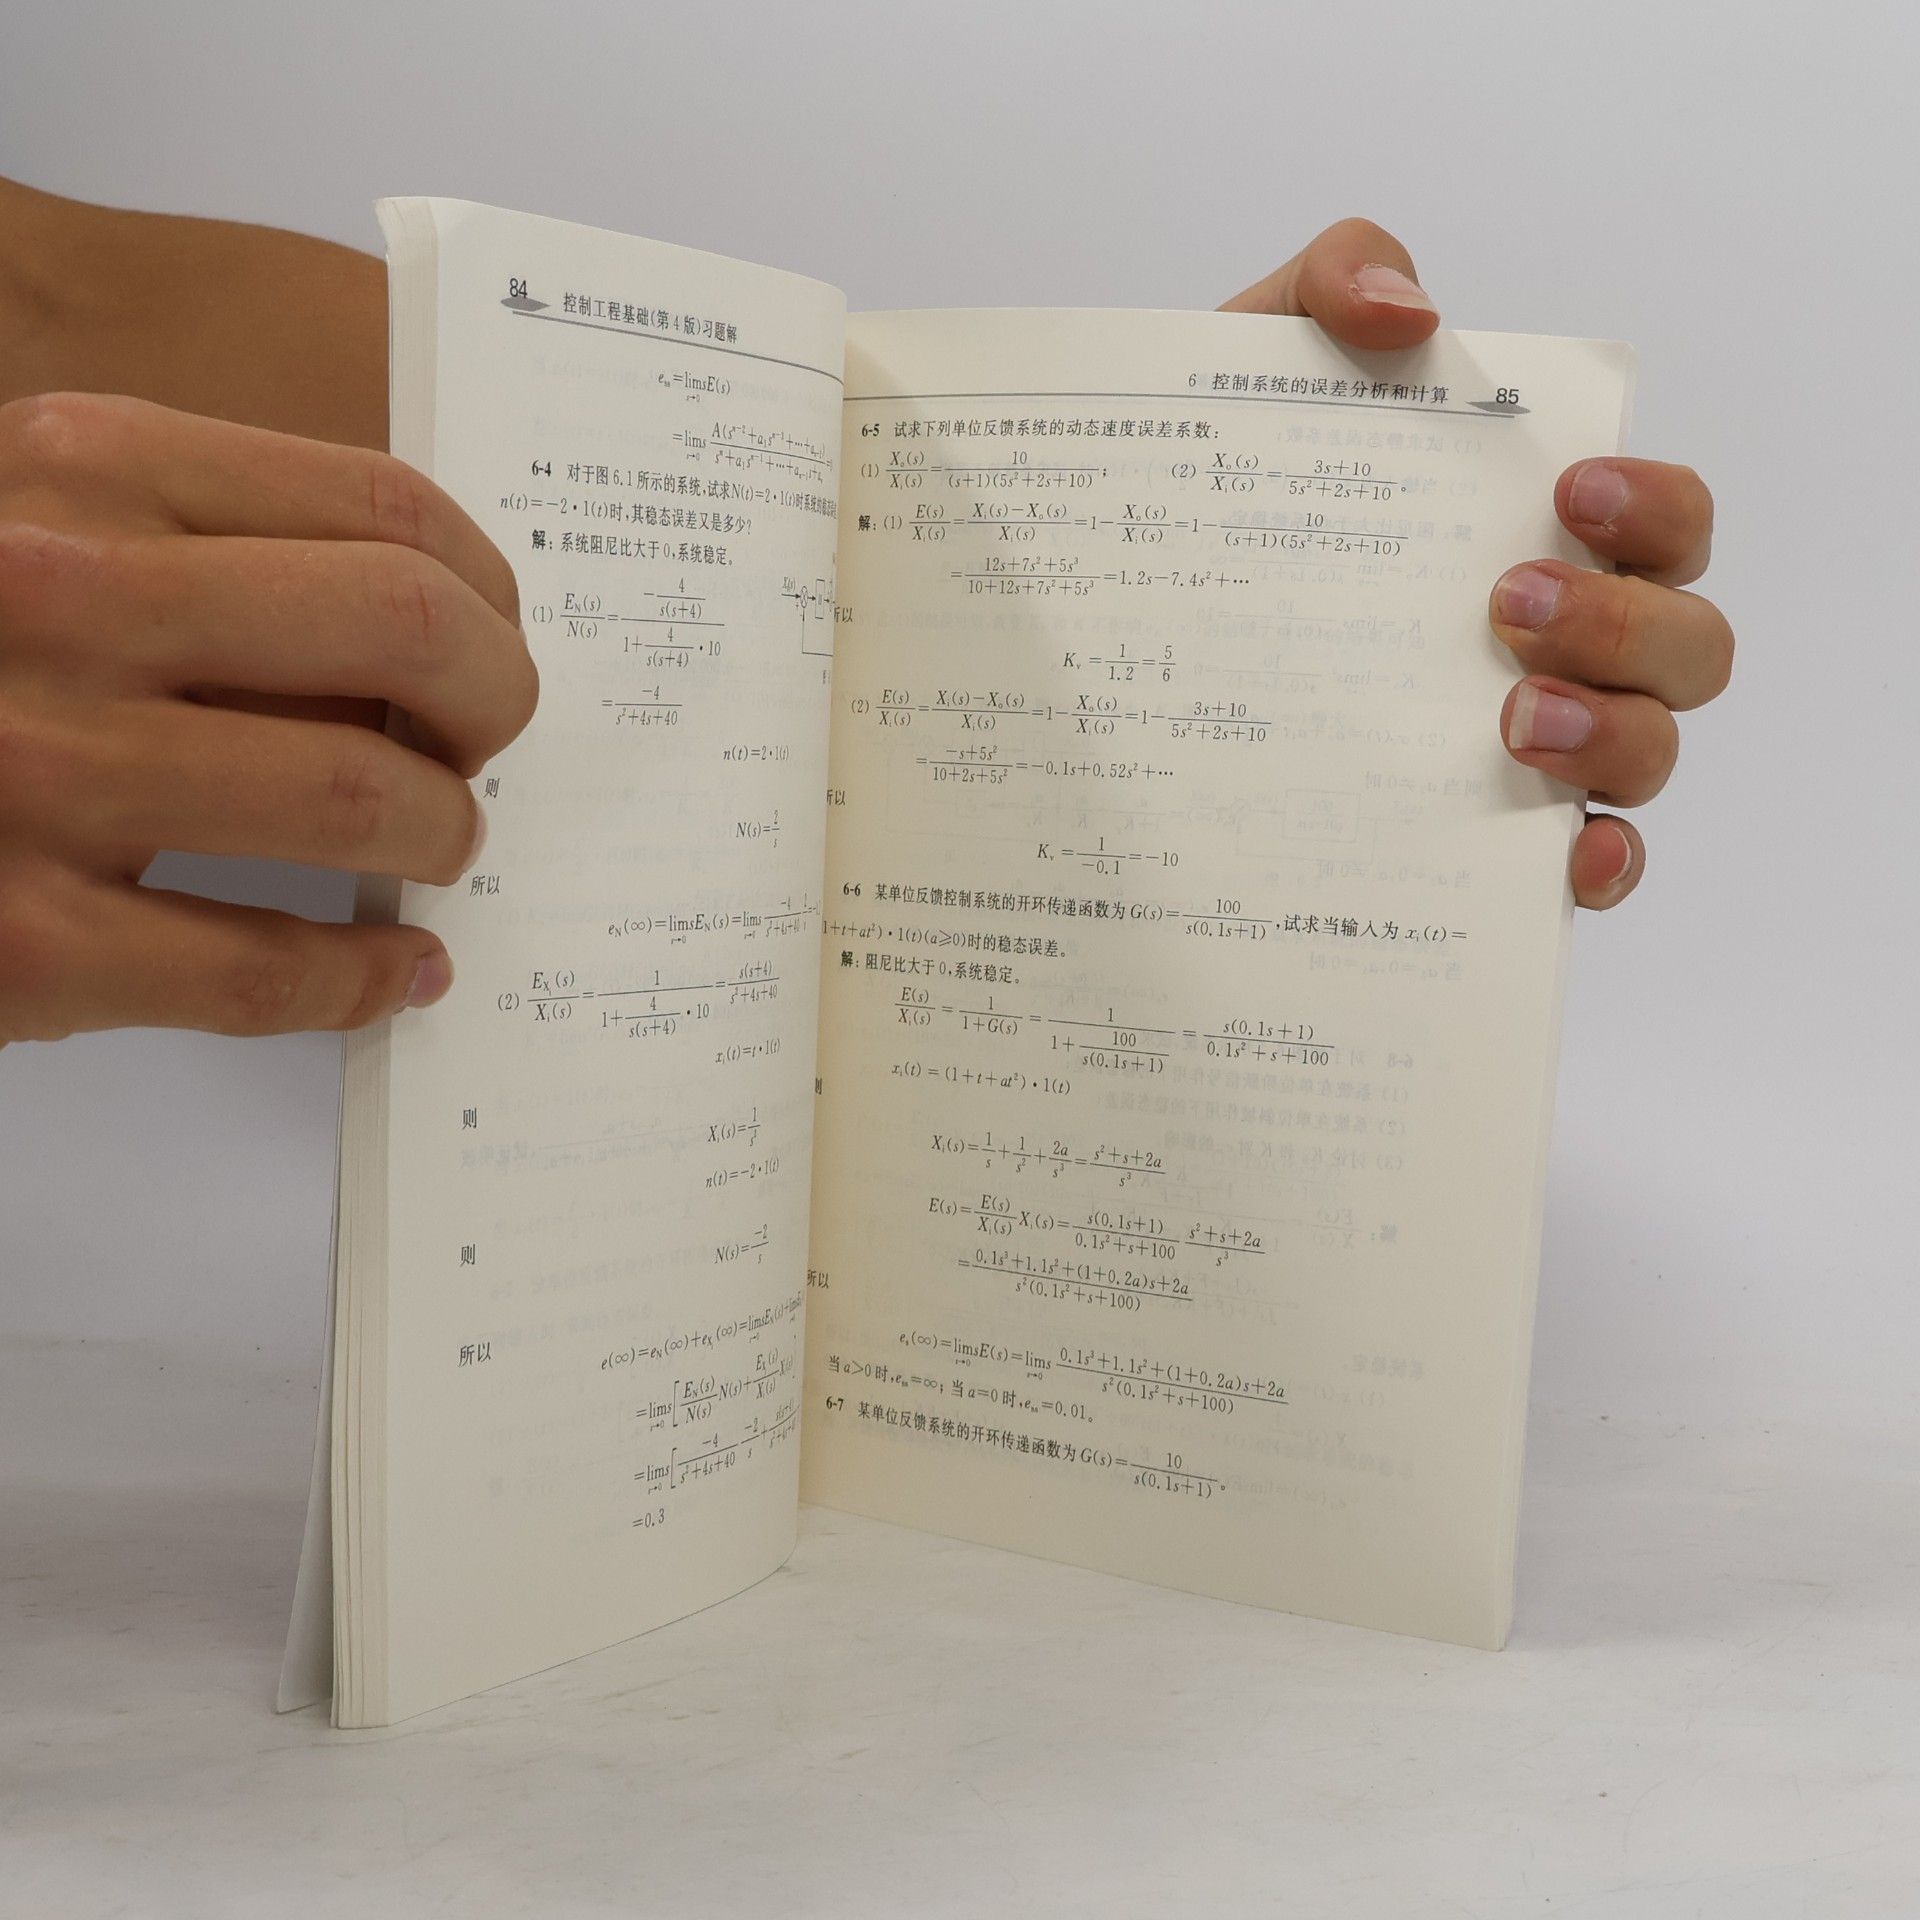 84
控制工程基础(第4版)习题解
e_ss=lim_{s→0} sE(s)
=lim_{s→0} s A(s^{n-2}+a_1s^{n-3}+⋯+a_{n-2})/(s^n+a_1s^{n-1}+⋯+a_{n-1}s+a_n)
6-4 对于图6.1所示的系统,试求N(t)=2·1(t)时系统的稳态误差
n(t)=-2·1(t)时,其稳态误差又是多少?
解:系统阻尼比大于0,系统稳定。
(1) E_N(s)/N(s)=(-4/(s(s+4)))/(1+4/(s(s+4))·10)
=-4/(s²+4s+40)
n(t)=2·1(t)
则
N(s)=2/s
所以
e_N(∞)=lim_{s→0} sE_N(s)=lim_{s→0} s -4/(s²+4s+40)
(2) E_{X_i}(s)/X_i(s)=1/(1+4/(s(s+4))·10)=s(s+4)/(s²+4s+40)
x_i(t)=t·1(t)
则
X_i(s)=1/s²
n(t)=-2·1(t)
则
N(s)=-2/s
所以
e(∞)=e_N(∞)+e_{X_i}(∞)=lim_{s→0} sE_N(s)+
=lim_{s→0} s[E_N(s)/N(s) N(s)+E_{X_i}(s)/X_i(s)
=lim_{s→0} s[-4/(s²+4s+40) -2/s+
=0.3
6 控制系统的误差分析和计算 85
6-5 试求下列单位反馈系统的动态速度误差系数:
(1) X_o(s)/X_i(s)=10/((s+1)(5s²+2s+10)); (2) X_o(s)/X_i(s)=(3s+10)/(5s²+2s+10)。
解:(1) E(s)/X_i(s)=(X_i(s)-X_o(s))/X_i(s)=1-X_o(s)/X_i(s)=1-10/((s+1)(5s²+2s+10))
=(12s+7s²+5s³)/(10+12s+7s²+5s³)=1.2s-7.4s²+⋯
所以
K_v=1/1.2=5/6
(2) E(s)/X_i(s)=(X_i(s)-X_o(s))/X_i(s)=1-X_o(s)/X_i(s)=1-(3s+10)/(5s²+2s+10)
=(-s+5s²)/(10+2s+5s²)=-0.1s+0.52s²+⋯
所以
K_v=1/-0.1=-10
6-6 某单位反馈控制系统的开环传递函数为G(s)=100/(s(0.1s+1)),试求当输入为x_i(t)=
1+t+at²)·1(t)(a⩾0)时的稳态误差。
解:阻尼比大于0,系统稳定。
E(s)/X_i(s)=1/(1+G(s))=1/(1+100/(s(0.1s+1)))=s(0.1s+1)/(0.1s²+s+100)
x_i(t)=(1+t+at²)·1(t)
则
X_i(s)=1/s+1/s²+2a/s³=(s²+s+2a)/s³
E(s)=E(s)/X_i(s) X_i(s)=s(0.1s+1)/(0.1s²+s+100) (s²+s+2a)/s³
=(0.1s³+1.1s²+(1+0.2a)s+2a)/(s²(0.1s²+s+100))
所以
e_s(∞)=lim_{s→0} sE(s)=lim_{s→0} s (0.1s³+1.1s²+(1+0.2a)s+2a)/(s²(0.1s²+s+100))
当a>0时,e_ss=∞;当a=0时,e_ss=0.01。
6-7 某单位反馈系统的开环传递函数为G(s)=10/(s(0.1s+1))。